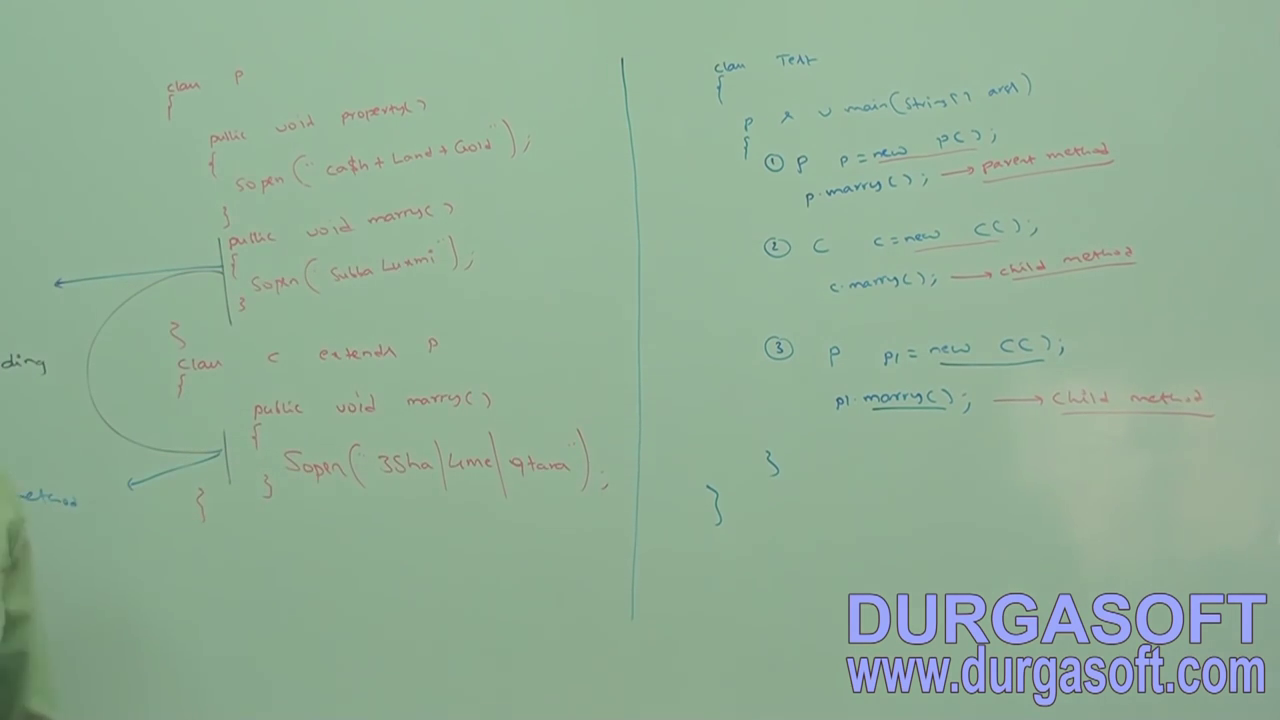 class P
{
public void property()
{
Sopen("ca$h + Land + Gold");
}
public void marry()
{
Sopen("Subba Luxmi");
}
}
class C extends P
{
public void marry()
{
Sopen("3Sha|4me|9tara");
}
}
ding
class Test
{
p s v main(String[] args)
{
① P p = new P();
p.marry(); → parent method
② C c = new C();
c.marry(); → child method
③ P p1 = new C();
p1.marry(); → child method
}
}
DURGASOFT
www.durgasoft.com